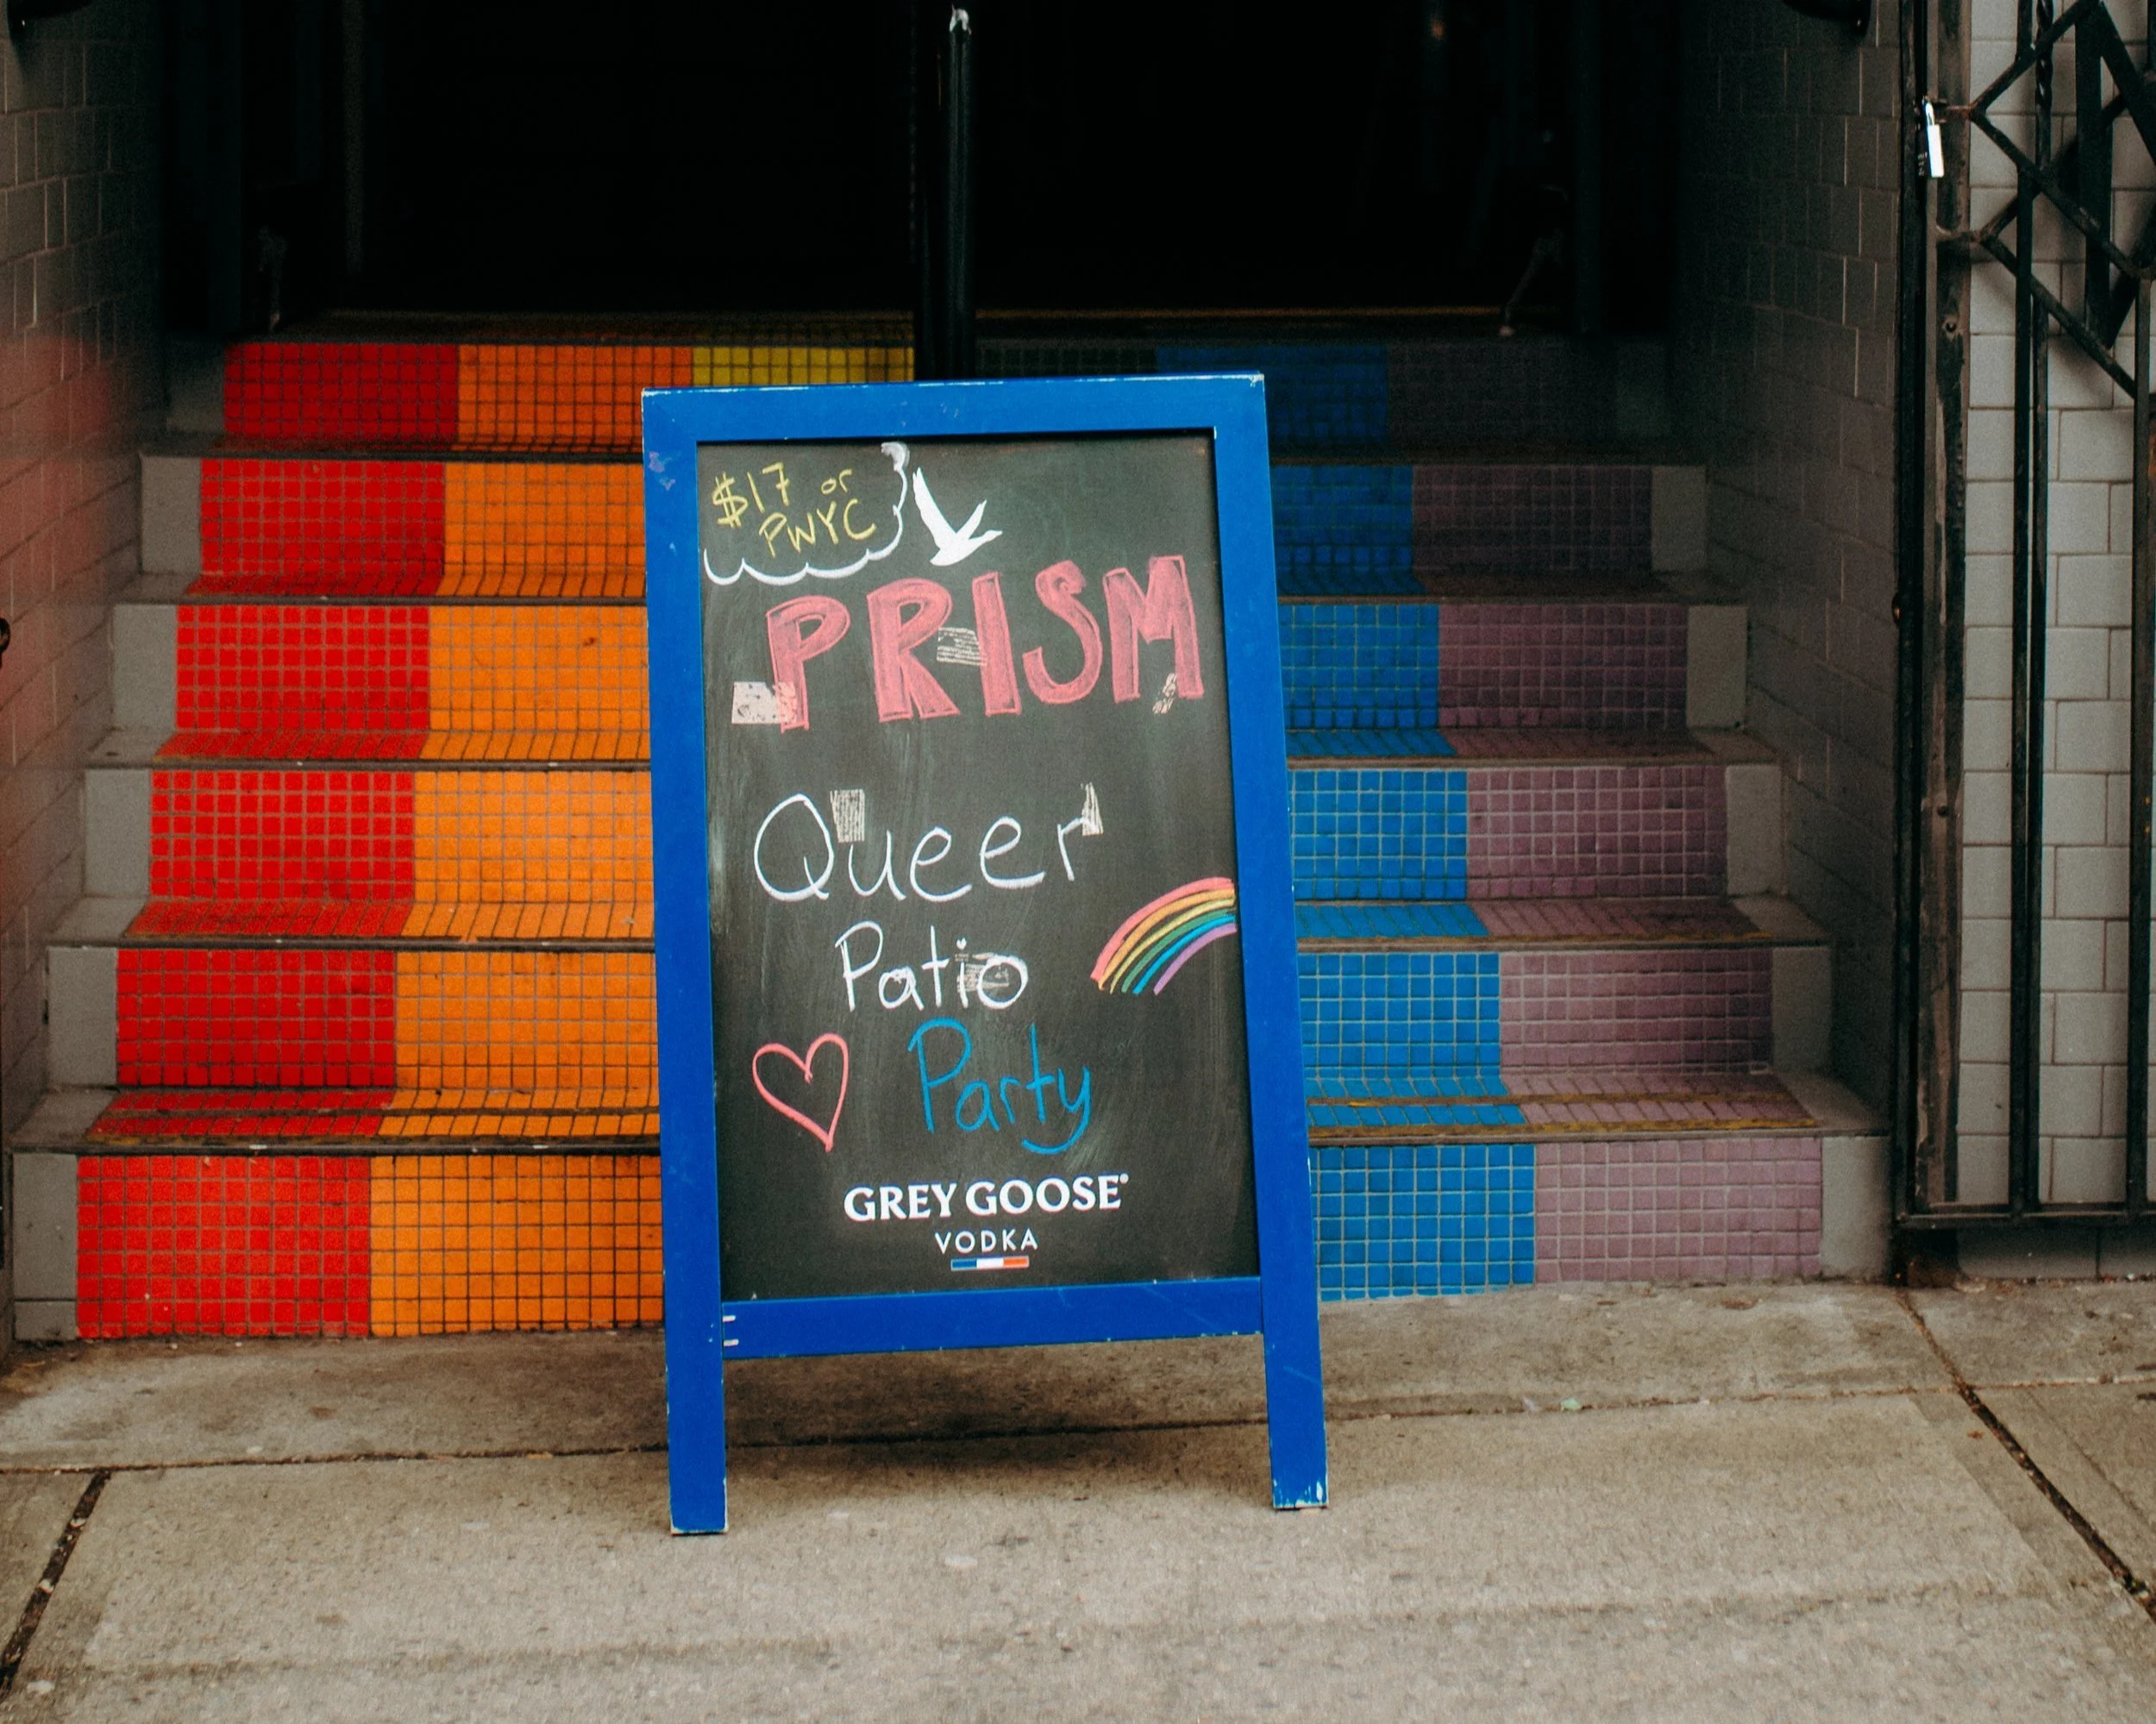 $17 or
PWYC
PRISM
Queer
Patio
Party
GREY GOOSE®
VODKA